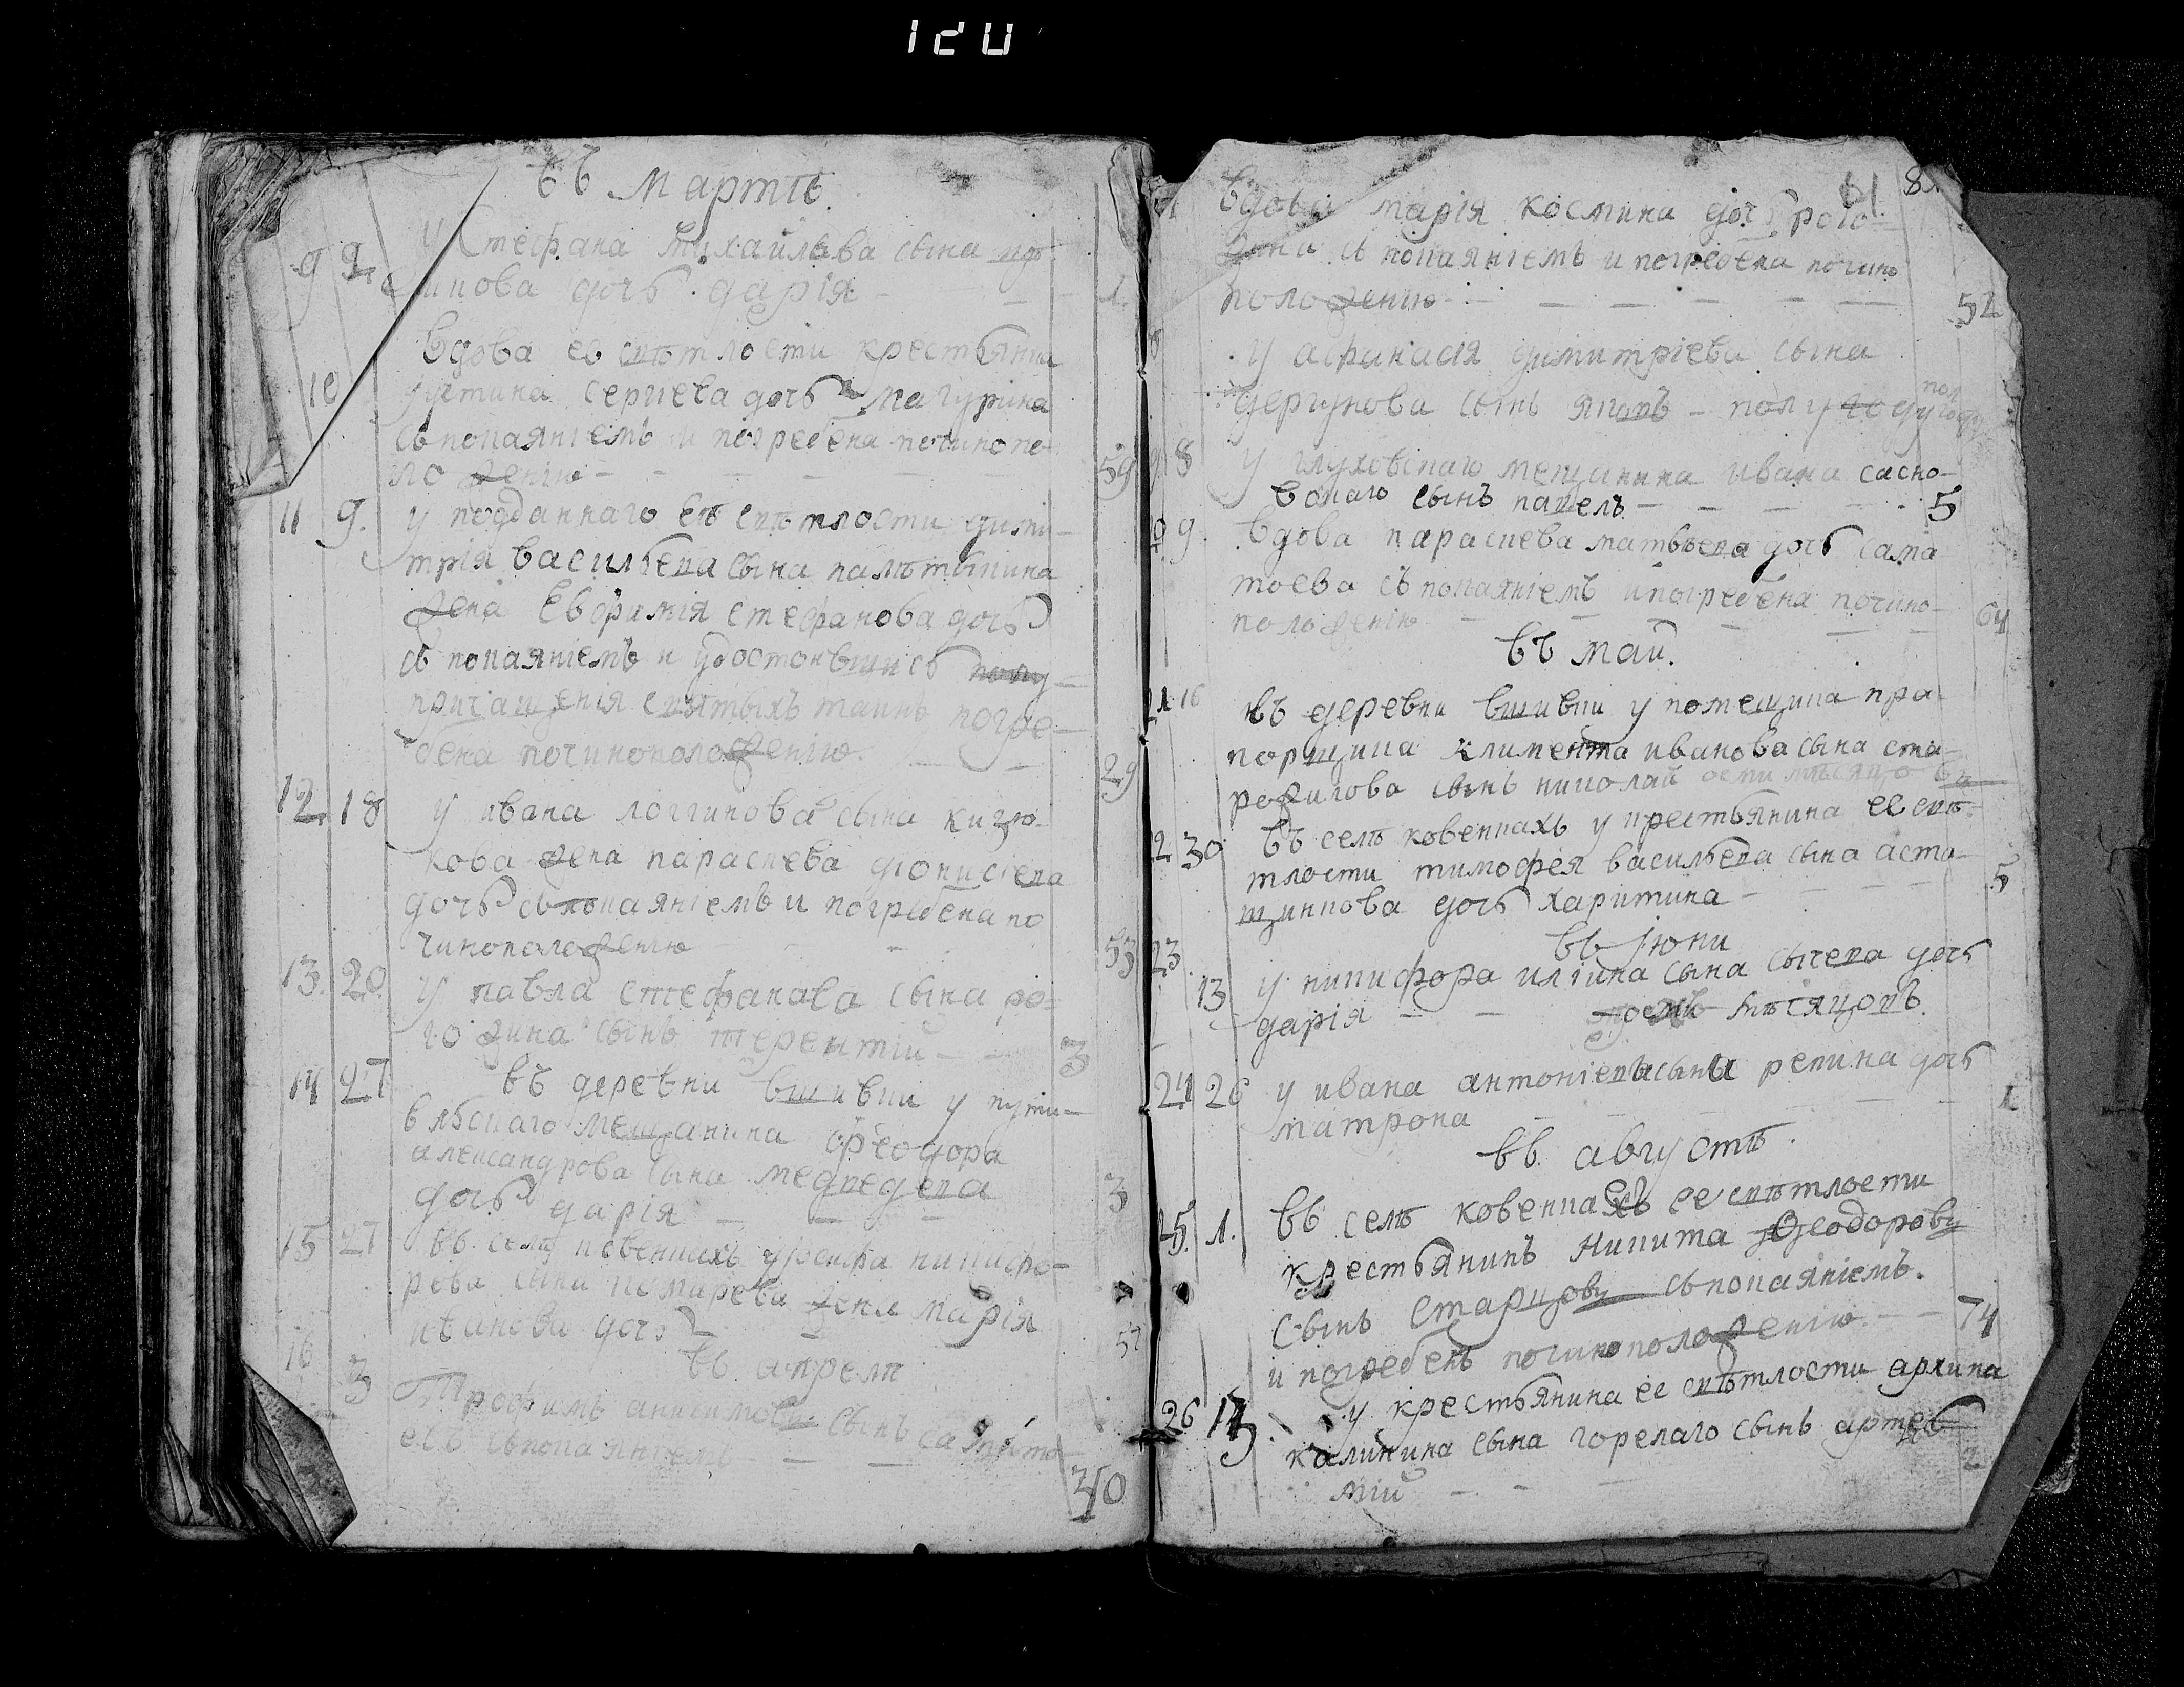 120
въ мартѣ.
9 2 У Стефана михайлова сына
дочь дарія — — 1.
10 Вдова ее свѣтлости крестьянка
устина сергиева дочь
съ покаяніемъ и погребена по чинопо-
ложенію — — — 59
11 9. у подданнаго ея свѣтлости дими-
трія васильева сына
жена Евфимія стефанова дочь
съ покаяніемъ и удостоившись
причащенія святыхъ таинъ погре-
бена по чиноположенію. — — 29
12 18 у ивана логгинова сына кизю-
кова жена параскева діонисіева
дочь съ покаяніемъ и погребена по
чиноположенію — — 53
13. 20. У павла стефанова сына ро-
гожина сынъ терентий — — 3
14 27 въ деревни вшивки у пути-
вльскаго мещанина феодора
александрова сына медведева
дочь дарія — — — 3
15 27 въ селѣ ковенкахъ у никифо-
рова сына жена марія
иванова дочь — 57
въ апрелѣ
16 3 Трофимъ анисимовъ сынъ
съ покаяніемъ — — 30
61
вдова марія космина дочь рого-
жина съ покаяніемъ и погребена по чино
положенію — — — — — 52
у афанасія димитріева сына
сынъ яковъ — полугоду
8 У глуховскаго мещанина ивана сасно-
вскаго сынъ павелъ — — — 5
9 вдова параскева матвѣева дочь сама
тоева съ покаяніемъ и погребена по чино-
положенію — — — — 64
въ май.
21 16 въ деревни вшивки у помещика пра-
порщика климента иванова сына ста-
рожилова сынъ николай осми мѣсяцовъ
22 30 въ селѣ ковенкахъ у крестьянина ее свѣ-
тлости тимофея васильева сына аста-
щинкова дочь харитина — — — 5
въ іюни
23 13 у никифора иліина сына сычева дочь
дарія — — осми мѣсяцовъ.
24 26 у ивана антоніева сына репина дочь
матрона — — — — — 1
въ августѣ.
25. 1. въ селѣ ковенкахъ ее свѣтлости
крестьянинъ никита феодоровъ
сынъ Старцовъ съ покаяніемъ.
и погребенъ по чиноположенію. — — 74
26 13. у крестьянина ее свѣтлости архипа
калинина сына горелаго сынъ арте
мій — — — 2